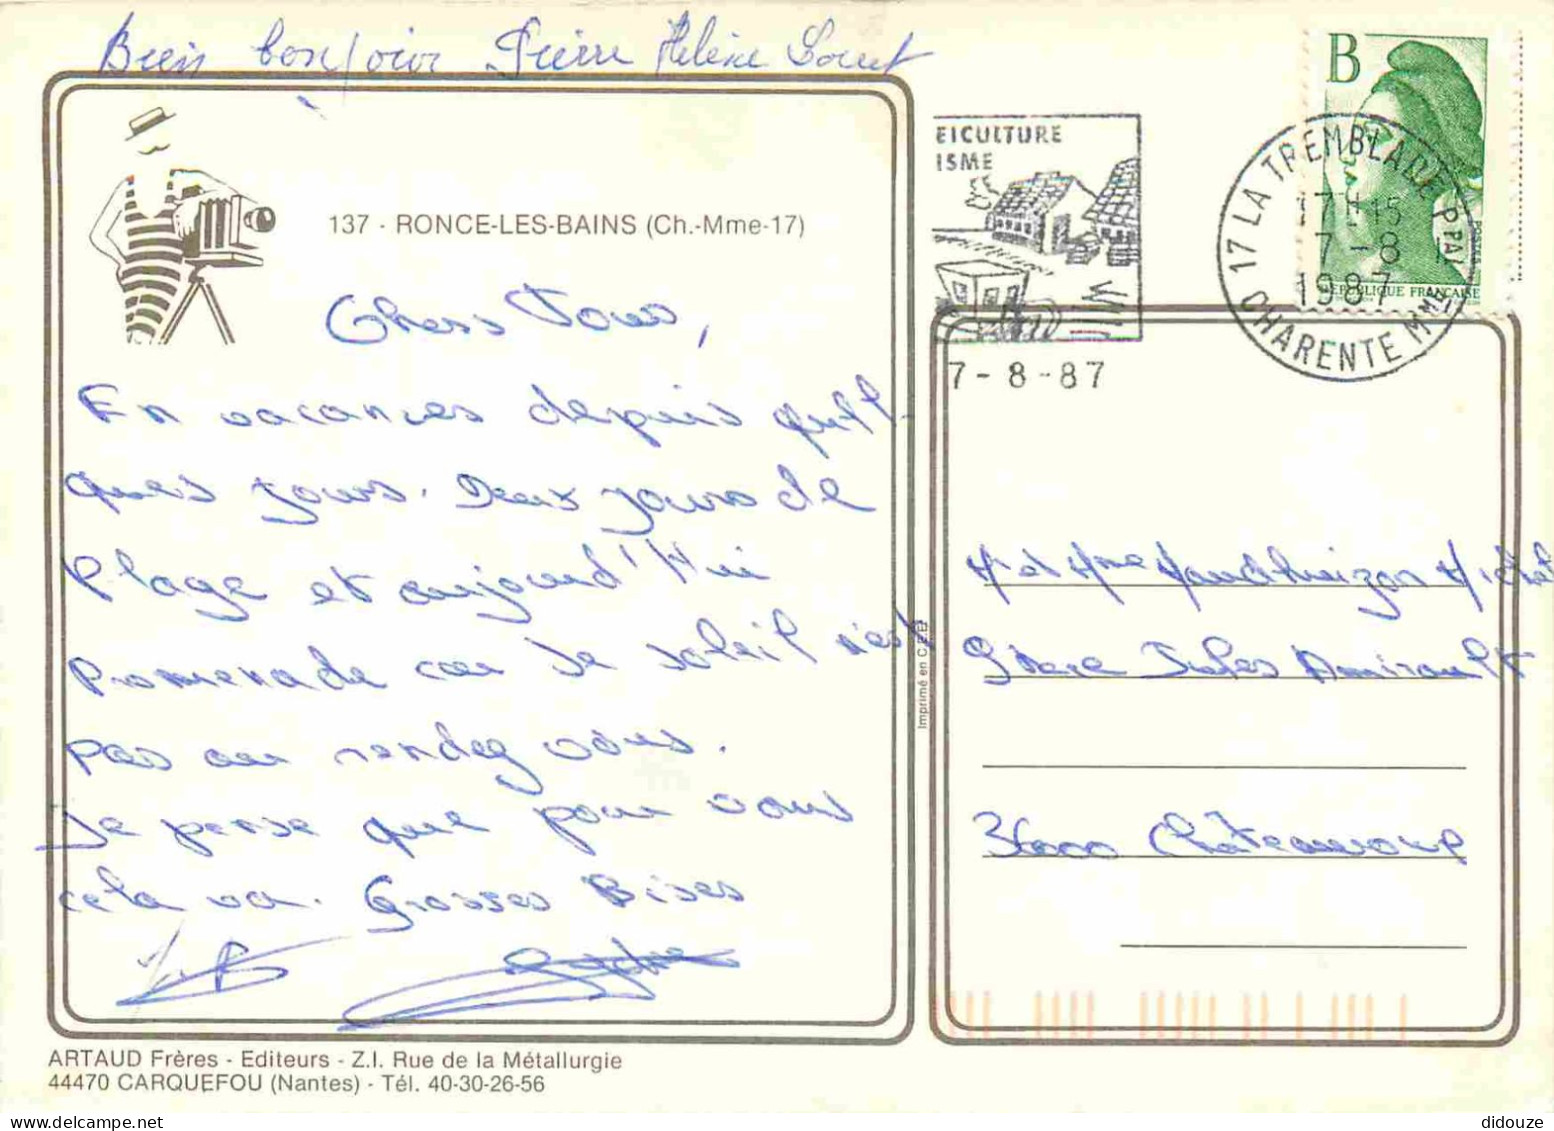 Bien bonjour Pierre Hélène
137 - RONCE-LES-BAINS (Ch.-Mme-17)
Chers Tous,
En vacances depuis quel-
ques jours. Deux jours de
Plage et aujourd'Hui
Promenade car le soleil n'est
pas au rendez vous.
Je pense que pour vous
cela va. Grosses Bises
EICULTURE
ISME
7-8-87
B
17 LA TREMBLADE PPAL
17H15
7-8
1987
CHARENTE MME
POSTES
REPUBLIQUE FRANÇAISE
Imprimé en C.E.E
Mr et Mme Michel
9 Place Jules Amirault
36000 Châteauroux
ARTAUD Frères - Editeurs - Z.I. Rue de la Métallurgie
44470 CARQUEFOU (Nantes) - Tél. 40-30-26-56
didouze